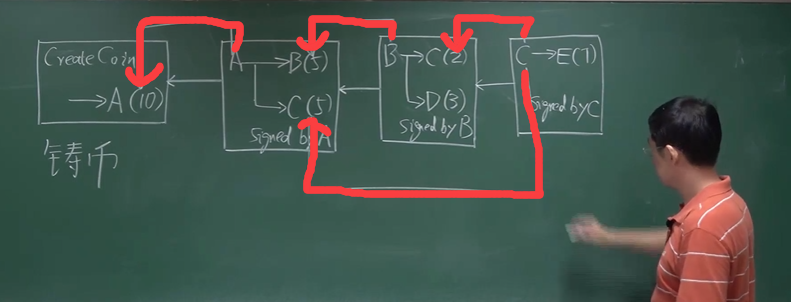 Create Coin
→A(10)
A→B(5)
→C(5)
Signed by A
B→C(2)
→D(3)
Signed by B
C→E(7)
Signed by C
铸币